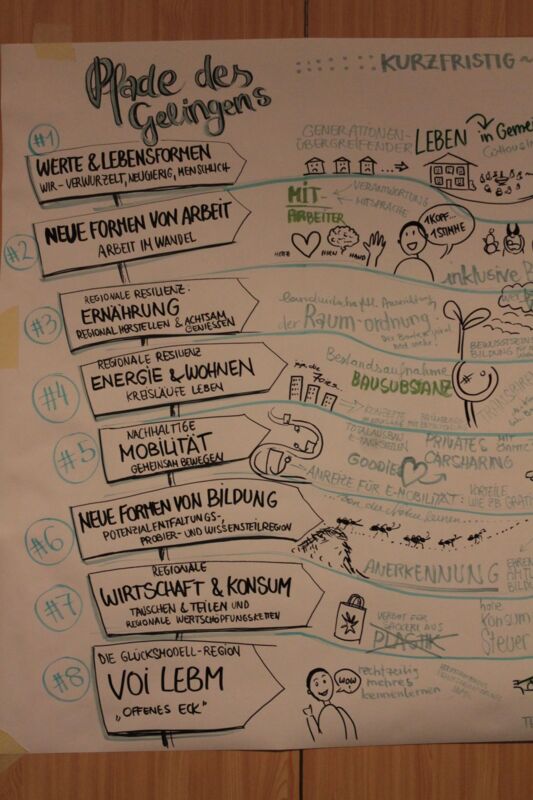 Pfade des
Gelingens
KURZFRISTIG ~
#1
WERTE & LEBENSFORMEN
WIR - VERWURZELT, NEUGIERIG, MENSCHLICH
GENERATIONEN-
ÜBERGREIFENDER
LEBEN in Gemei
#2
NEUE FORMEN VON ARBEIT
ARBEIT IM WANDEL
MIT-
ARBEITER
VERANTWORTUNG
MITSPRACHE
HERZ
HIRN
HAND
1 KOPF...
1 STIMME
inklusive B
#3
REGIONALE RESILIENZ:
ERNÄHRUNG
REGIONAL HERSTELLEN & ACHTSAM
GENIESSEN
der Raum-ordnung
BILDUNG
#4
REGIONALE RESILIENZ
ENERGIE & WOHNEN
KREISLÄUFE LEBEN
70er
Bestandsaufnahme
BAUSUBSTANZ
KONZEPTE
#5
NACHHALTIGE
MOBILITÄT
GEMEINSAM BEWEGEN
TOTALAUSBAU
E-TANKSTELLEN
GOODIE
PRIVATES
CARSHARING
ANREIZE FÜR E-MOBILITÄT:
VORTEILE
WIE ZB GRATI
#6
NEUE FORMEN VON BILDUNG
POTENZIALENTFALTUNGS-,
PROBIER- UND WISSENSTEILREGION
ANERKENNUNG
#7
REGIONALE
WIRTSCHAFT & KONSUM
TAUSCHEN & TEILEN UND
REGIONALE WERTSCHÖPFUNGSKETTEN
VERBOT FÜR
SACKERL AUS
PLASTIK
hohe
Konsum
Steuer
#8
DIE GLÜCKSMODELL-REGION
VOI LEBM
"OFFENES ECK"
WOW
rechtzeitig
mehres
kennenlernen